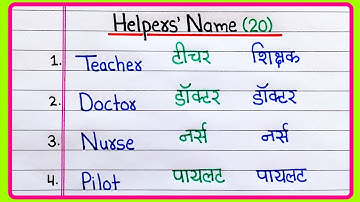 Helpers' Name (20)
1. Teacher टीचर शिक्षक
2. Doctor डॉक्टर डॉक्टर
3. Nurse नर्स नर्स
4. Pilot पायलट पायलट